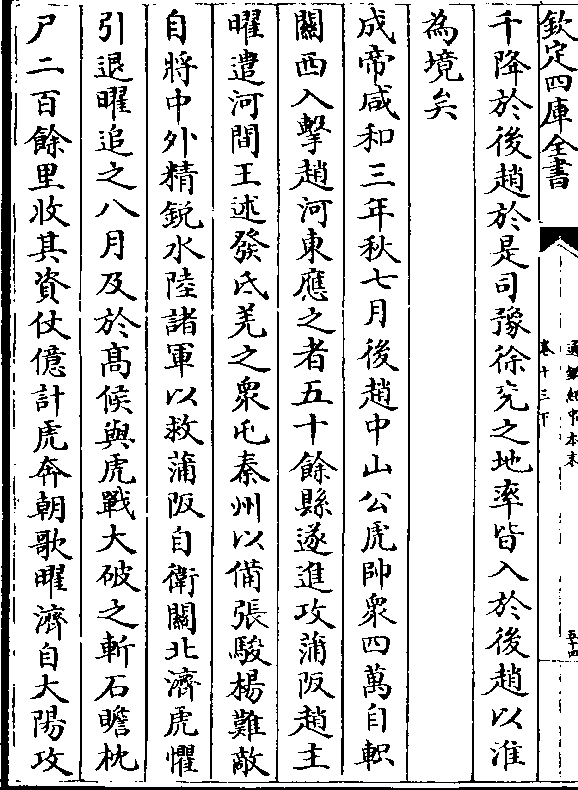 欽定四庫全書
通鑑紀事本末
卷十三下
五十四
千降於後趙於是司豫徐兖之地率皆入於後趙以淮
為境矣
成帝咸和三年秋七月後趙中山公虎帥衆四萬自軹
關西入擊趙河東應之者五十餘縣遂進攻蒲阪趙主
曜遣河間王述發氐羌之衆屯秦州以備張駿楊難敵
自將中外精鋭水陸諸軍以救蒲阪自衛關北濟虎懼
引退曜追之八月及於髙候與虎戰大破之斬石瞻枕
尸二百餘里收其資仗億計虎奔朝歌曜濟自大陽攻